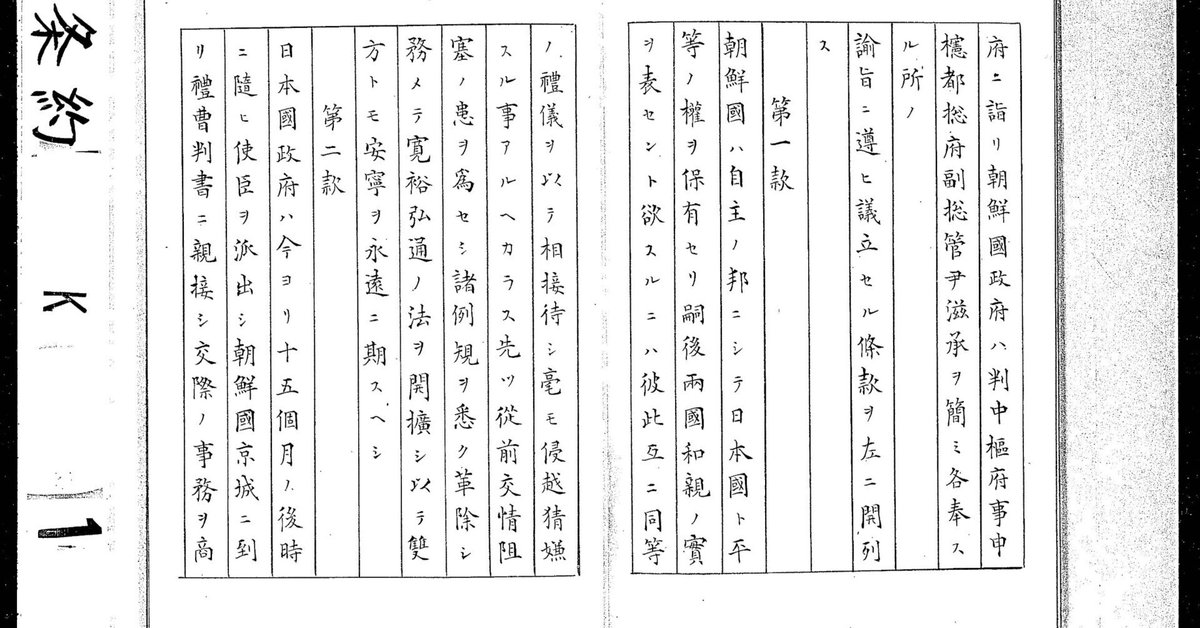 府ニ詣リ朝鮮國政府ハ判中樞府事申
櫶都揔府副揔管尹滋承ヲ簡ミ各奉ス
ル所ノ
諭旨ニ遵ヒ議立セル條款ヲ左ニ開列
ス
第一款
朝鮮國ハ自主ノ邦ニシテ日本國ト平
等ノ權ヲ保有セリ嗣後兩國和親ノ實
ヲ表セント欲スルニハ彼此互ニ同等
ノ禮儀ヲ以テ相接待シ毫モ侵越猜嫌
スル事アルヘカラス先ツ從前交情阻
塞ノ患ヲ爲セシ諸例規ヲ悉ク革除シ
務メテ寛裕弘通ノ法ヲ開擴シ以テ雙
方トモ安寧ヲ永遠ニ期スヘシ
第二款
日本國政府ハ今ヨリ十五個月ノ後時
ニ隨ヒ使臣ヲ派出シ朝鮮國京城ニ到
リ禮曹判書ニ親接シ交際ノ事務ヲ商
条約
K
1